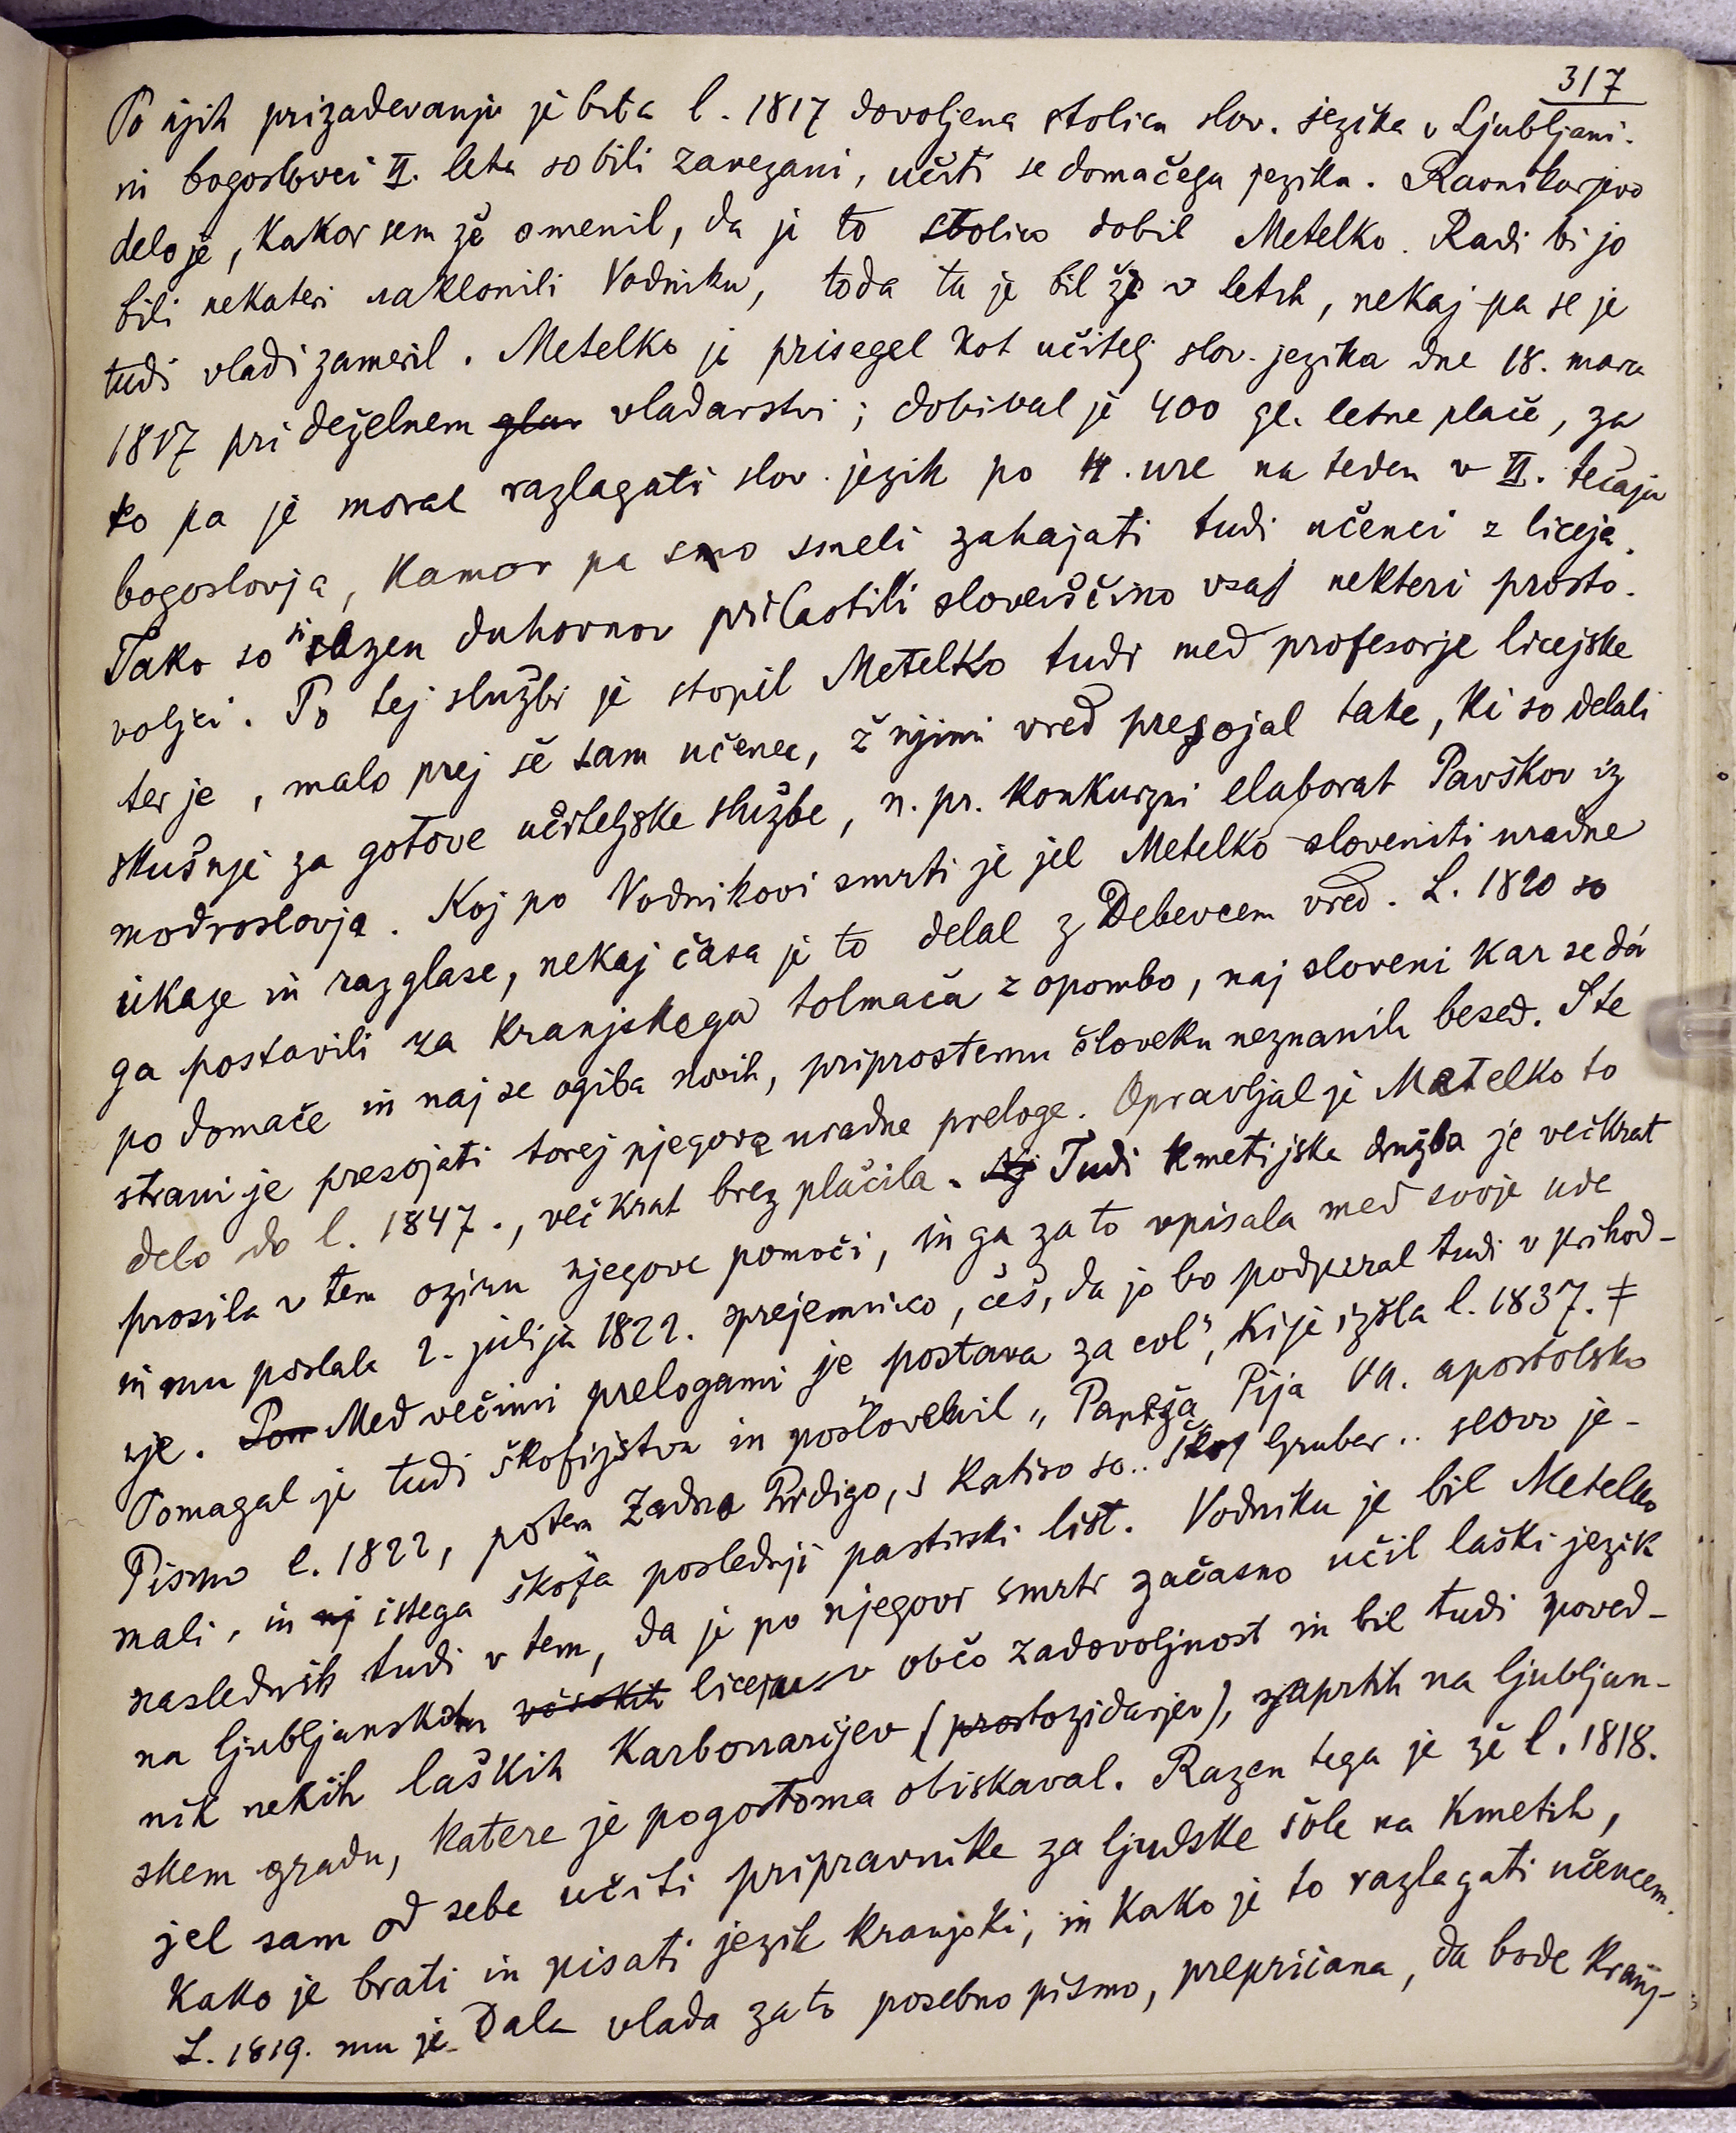 317
Po njih prizadevanju je bila l. 1817 dovoljena stolica slov. jezika v Ljubljani.
in bogoslovci II. leta so bili zavezani, učiti se domačega jezika. Ravnikarjevo
delo je, kakor sem že omenil, da je to stolico dobil Metelko. Radi bi jo
bili nekateri naklonili Vodniku, toda ta je bil že v letih, nekaj pa se je
tudi vladi zameril. Metelko je prisegel kot učitelj slov. jezika dne 18. marca
1817 pri deželnem glav vladarstvi; dobival je 400 gl. letne plače, za
to pa je moral razlagati slov. jezik po 4. ure na teden v II. tečaju
bogoslovja, kamor pa smo smeli zahajati tudi učenci z liceja.
Tako so si razen duhovnov prilastili slovenščino vsaj nekteri prosto-
voljci. Po tej službi je stopil Metelko tudi med profesorje licejske
ter je, malo prej še sam učenec, ž njimi vred presojal take, ki so delali
skušnje za gotove učiteljske službe, n. pr. konkurzni elaborat Pavškov iz
modroslovja. Koj po Vodnikovi smrti je jel Metelko sloveniti uradne
ukaze in razglase, nekaj časa je to delal z Debevcem vred. L. 1820 so
ga postavili za kranjskega tolmača z opombo, naj sloveni kar se dá
po domače in naj se ogiba novih, priprostemu človeku neznanih besed. S te
strani je presojati torej njegove uradne preloge. Opravljal je Metelko to
delo do l. 1847., večkrat brez plačila. Nj Tudi kmetijska družba je večkrat
prosila v tem oziru njegove pomoči, in ga zato vpisala med svoje ude
in mu poslala 2. julija 1822. sprejemnico, češ, da jo bo podpiral tudi v prihod-
nje. Pom Med večimi prelogami je postava za col", ki je izšla l. 1837. ‡
Pomagal je tudi škofijstvu in poslovenil „Papeža Pija VII. apostolsko
Pismo l. 1822, potem Zadno Pridigo, s katiro so.. škof Gruber.. slovo je-
mali, in nj istega škofa poslednji pastirski list. Vodniku je bil Metelko
naslednik tudi v tem, da je po njegovi smrti začasno učil laški jezik
na ljubljanskem visokih liceju v občo zadovoljnost in bil tudi spoved-
nik nekih laških Karbonarijev (prostozidarjev), zaprtih na ljubljan-
skem gradu, katere je pogostoma obiskaval. Razen tega je že l. 1818.
jel sam od sebe učiti pripravnike za ljudske šole na kmetih,
kako je brati in pisati jezik kranjski, in kako je to razlagati učencem.
L. 1819. mu je dala vlada za to posebno pismo, prepričana, da bode kranj-